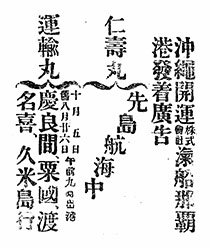 沖繩開運株式會社滊船那覇
港發着廣告
仁壽丸
先島航海中
運輸丸
十月五日午前九時出港
舊八月廿六日
慶良間粟國渡
名喜、久米島行